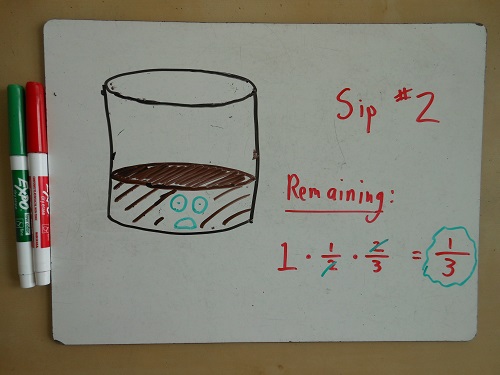 Sip #2
Remaining:
1 · 1/2 · 2/3 = 1/3
EXPO